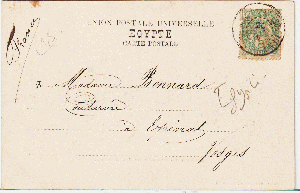 UNION POSTALE UNIVERSELLE
EGYPTE
CARTE POSTALE
France
Madame Bonnard
à Epinal
Vosges